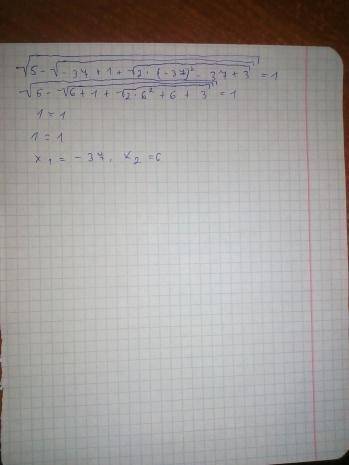 √5-√-37+1+√2·(-37)²-37+3 = 1
√5-√6+1+√2·6²+6+3 = 1
1=1
1=1
x₁ = -37, x₂ = 6